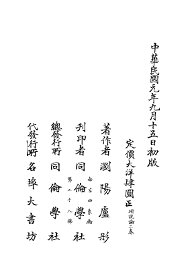 中華民國元年九月十五日初版
定價大洋肆圓正
著作者瀏陽盧彤
刊印者同倫學社
總發行所同倫學社
代發行所名埠大書坊